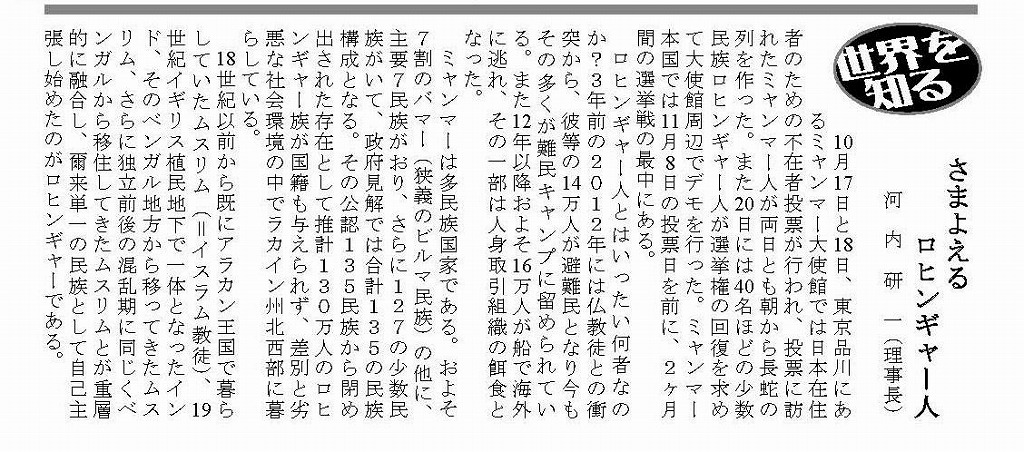 世界を
知る
さまよえる
ロヒンギャー人
河内研一（理事長）
10月17日と18日、東京品川にあ
るミャンマー大使館では日本在住
者のための不在者投票が行われ、投票に訪
れたミャンマー人が両日とも朝から長蛇の
列を作った。また20日には40名ほどの少数
民族ロヒンギャー人が選挙権の回復を求め
て大使館周辺でデモを行った。ミャンマー
本国では11月8日の投票日を前に、２ヶ月
間の選挙戦の最中にある。
ロヒンギャー人とはいったい何者なの
か？３年前の２０１２年には仏教徒との衝
突から、彼等の14万人が避難民となり今も
その多くが難民キャンプに留められてい
る。また12年以降およそ16万人が船で海外
に逃れ、その一部は人身取引組織の餌食と
なった。
ミャンマーは多民族国家である。およそ
７割のバマー（狭義のビルマ民族）の他に、
主要７民族がおり、さらに１２７の少数民
族がいて、政府見解では合計１３５の民族
構成となる。その公認１３５民族から閉め
出された存在として推計１３０万人のロヒ
ンギャー族が国籍も与えられず、差別と劣
悪な社会環境の中でラカイン州北西部に暮
らしている。
18世紀以前から既にアラカン王国で暮ら
していたムスリム（＝イスラム教徒）、19
世紀イギリス植民地下で一体となったイン
ド、そのベンガル地方から移ってきたムス
リム、さらに独立前後の混乱期に同じくベ
ンガルから移住してきたムスリムとが重層
的に融合し、爾来単一の民族として自己主
張し始めたのがロヒンギャーである。